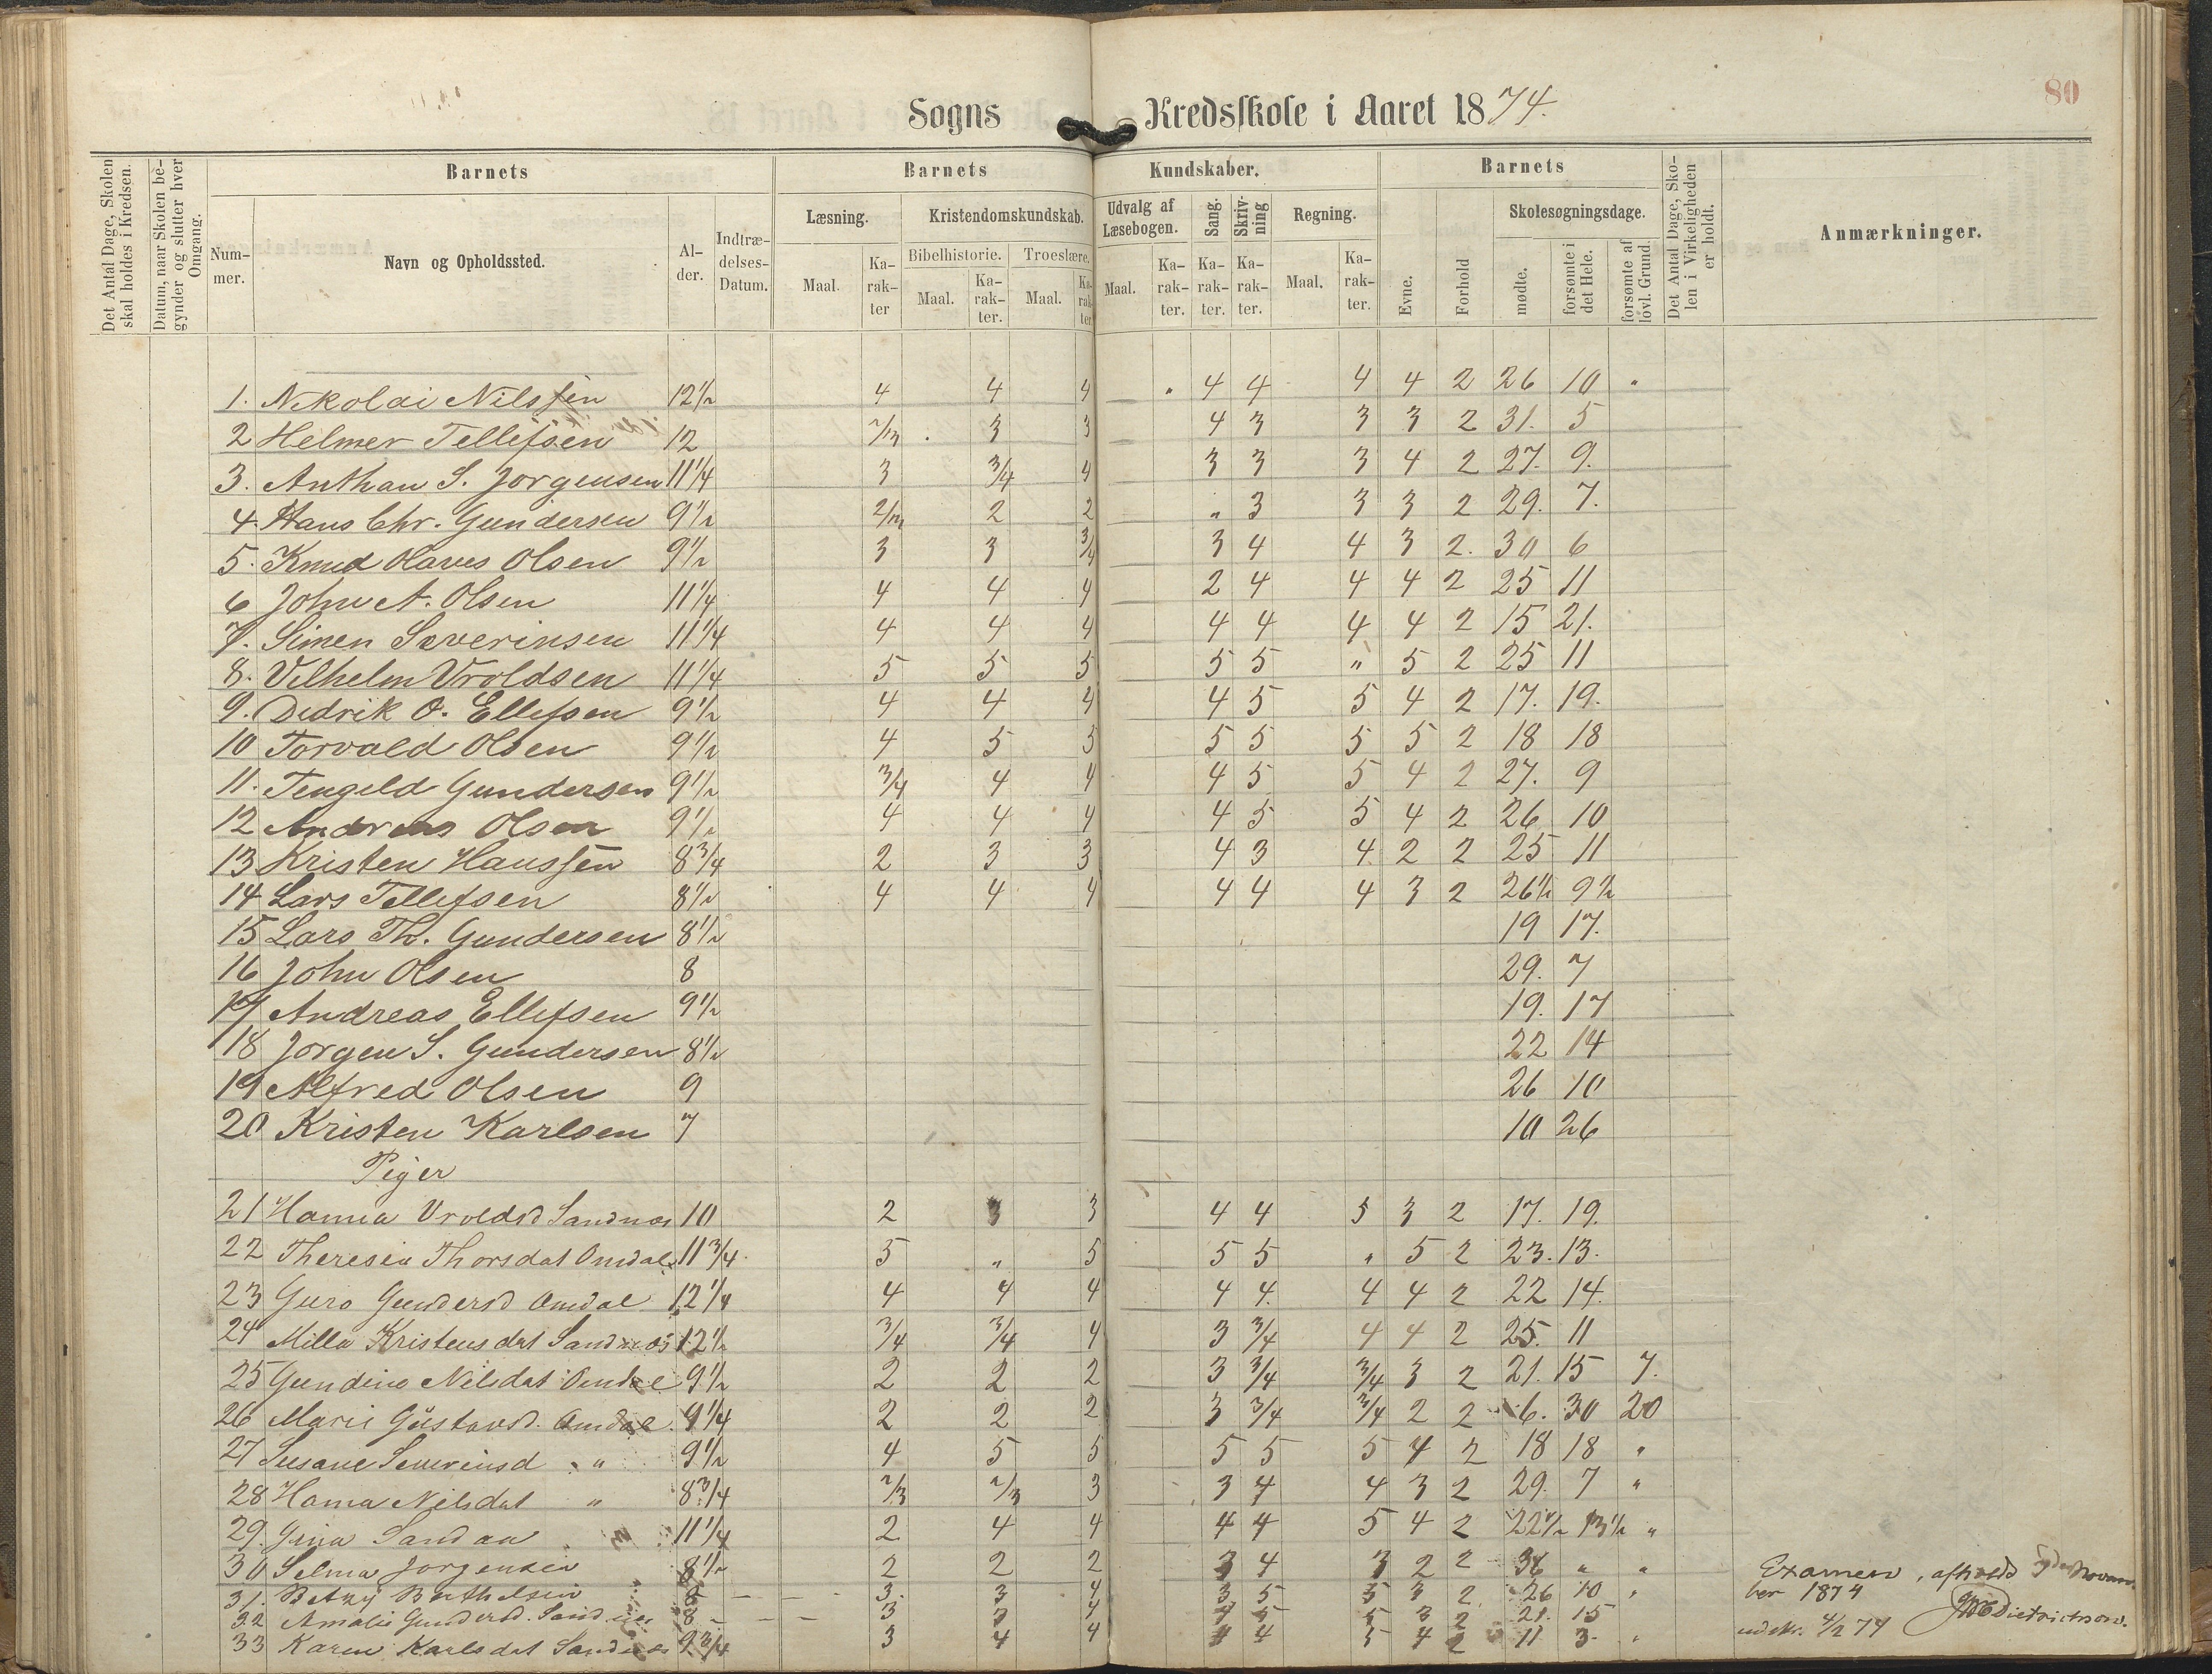 80
Sogns Kredsskole i Aaret 1874.
Det Antal Dage, Skolen skal holdes i Kredsen.
Datum, naar Skolen begynder og slutter hver Omgang.
Barnets Barnets Kundskaber. Barnets
Det Antal Dage, Skolen i Virkeligheden er holdt.
Anmærkninger.
Nummer. Navn og Opholdssted. Alder. Indtrædelses-Datum.
Læsning. Kristendomskundskab. Udvalg af Læsebogen. Sang. Skrivning Regning. Evne. Forhold Skolesøgningsdage.
Bibelhistorie. Troeslære.
Maal. Karakter Maal. Karakter. Maal. Karakter. Maal. Karakter. Karakter. Karakter. Maal. Karakter. mødte. forsømte i det Hele. forsømte af lovl. Grund.
1. Nikolai Nilssen 12 1/2 4 4 4 " 4 4 4 4 2 26 10 "
2 Helmer Tellefsen 12 2/3 3 3 4 3 3 3 2 31. 5
3. Anthan S. Jorgensen 11 1/4 3 3/4 4 3 3 3 4 2 27. 9.
4. Hans Chr. Gundersen 9 1/2 2/3 2 2 " 3 3 3 2 29. 7.
5. Knud Olaves Olsen 9 1/2 3 3 3/4 3 4 4 3 2. 30 6
6 John A. Olsen 11 1/4 4 4 4 2 4 4 4 2 25 11
7. Simen Severinsen 11 1/4 4 4 4 4 4 4 4 2 15 21.
8. Vilhelm Vroldsen 11 1/4 5 5 5 5 5 " 5 2 25 11
9. Dedrik O. Ellefsen 9 1/2 4 4 4 4 5 5 4 2 17. 19.
10 Torvald Olsen 9 1/2 4 5 5 5 5 5 5 2 18 18
11. Tengeld Gundersen 9 1/2 3/4 4 4 4 5 5 4 2 27. 9
12 Andreas Olsen 9 1/2 4 4 4 4 5 5 4 2 26 10
13 Kristen Hanssen 8 3/4 2 3 3 4 3 4 2 2 25 11
14 Lars Tellefsen 8 1/2 4 4 4 4 4 4 3 2 26 1/2 9 1/2
15 Lars Th. Gundersen 8 1/2 19 17.
16 John Olsen 8 29. 7
17 Andreas Ellefsen 9 1/2 19. 17
18 Jorgen S. Gundersen 8 1/2 22 14
19 Alfred Olsen 9 26 10
20 Kristen Karlsen 7 10 26
Piger
21 Hanna Vroldsd Sandnæs 10 2 3 3 4 4 5 3 2 17. 19.
22 Theresia Thorsdat Omdal 11 3/4 5 " 5 5 5 " 5 2 23. 13.
23 Guro Gundersd Omdal 12 1/4 4 4 4 4 4. 4 4 2 22 14.
24 Milla Kristensdat Sandnæs 12 1/2 3/4 3/4 4 3 3/4 4 4 2 25. 11
25 Gundine Nilsdat Omdal 9 1/2 2 2 2 3 3/4 3/4 3 2 21. 15 7.
26 Marie Gustavsd. Omdal 9 1/4 2 2 2 3 3/4 3/4 2 2 6. 30 20
27 Susane Severinsd " 9 1/2 4 5 5 5 5 5 4 2 18 18 "
28 Hanna Nilsdat " 8 3/4 2/3 2/3 3 3 4 4 3 2 29. 7 "
29. Gina Sandaa 11 1/4 2 4 4 4 4 5 4 2 22 1/2 13 1/2 "
30 Selma Jorgensen 8 1/2 2 2 2 3 4 3 2 2 36 " "
31. Betzy Berthelsen 8 3. 3 4 3 5 5 3 2 26 10 "
32 Amalie Gundersd. Sandnæs 8 3 3 4 4 5 5 3 2 21. 15
33 Karen Karlsdat Sandnæs 9 3/4 3 4 4 4 4 5 4 2 11 3. "
Examen, afholdt Novem-
ber 1874
Diedrichson.
indskr. 4/2 74